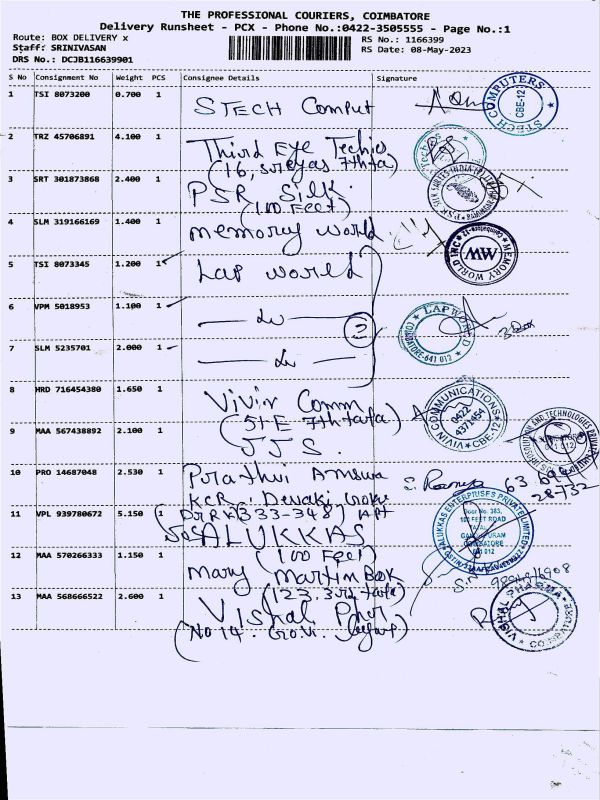 THE PROFESSIONAL COURIERS, COIMBATORE
Delivery Runsheet - PCX - Phone No.:0422-3505555 - Page No.:1
Route: BOX DELIVERY x
RS No.: 1166399
Staff: SRINIVASAN
RS Date: 08-May-2023
DRS No.: DCJB116639901
S No Consignment No Weight PCS Consignee Details Signature
1 TSI 8073200 0.700 1 STECH Comput
STECH COMPUTERS CBE-12
2 TRZ 45706891 4.100 1 Third Eye Techies
(16, Sreyas 7th ta)
3 SRT 301873868 2.400 1 PSR Silk.
(100 Feet)
4 SLM 319166169 1.400 1 memory world
MEMORY WORLD INC MW
5 TSI 8073345 1.200 1 Lap world
6 VPM 5018953 1.100 1
LAP WORLD COIMBATORE-641 012
7 SLM 5235701 2.000 1
8 HRD 716454380 1.650 1 Vivin Comm
(51-E 7th tata)
VIVIN COMMUNICATIONS 0422 4371454 CBE-12
9 MAA 567438892 2.100 1 JJS.
10 PRO 14687048 2.530 1 Prathvi
KCR. Devaki
11 VPL 939780672 5.150 1 (333-348) Apt
Jos ALUKKAS
(100 Feet)
ALUKKAS ENTERPRISES PRIVATE LIMITED
Door No. 383,
100 FEET ROAD
COIMBATORE
641 012
12 MAA 570266333 1.150 1 Mary Martin Box
(123, 3rd tata)
13 MAA 568666522 2.600 1 Vishal Phar
(No 14. Govi.
VISHAL PHARMA COIMBATORE